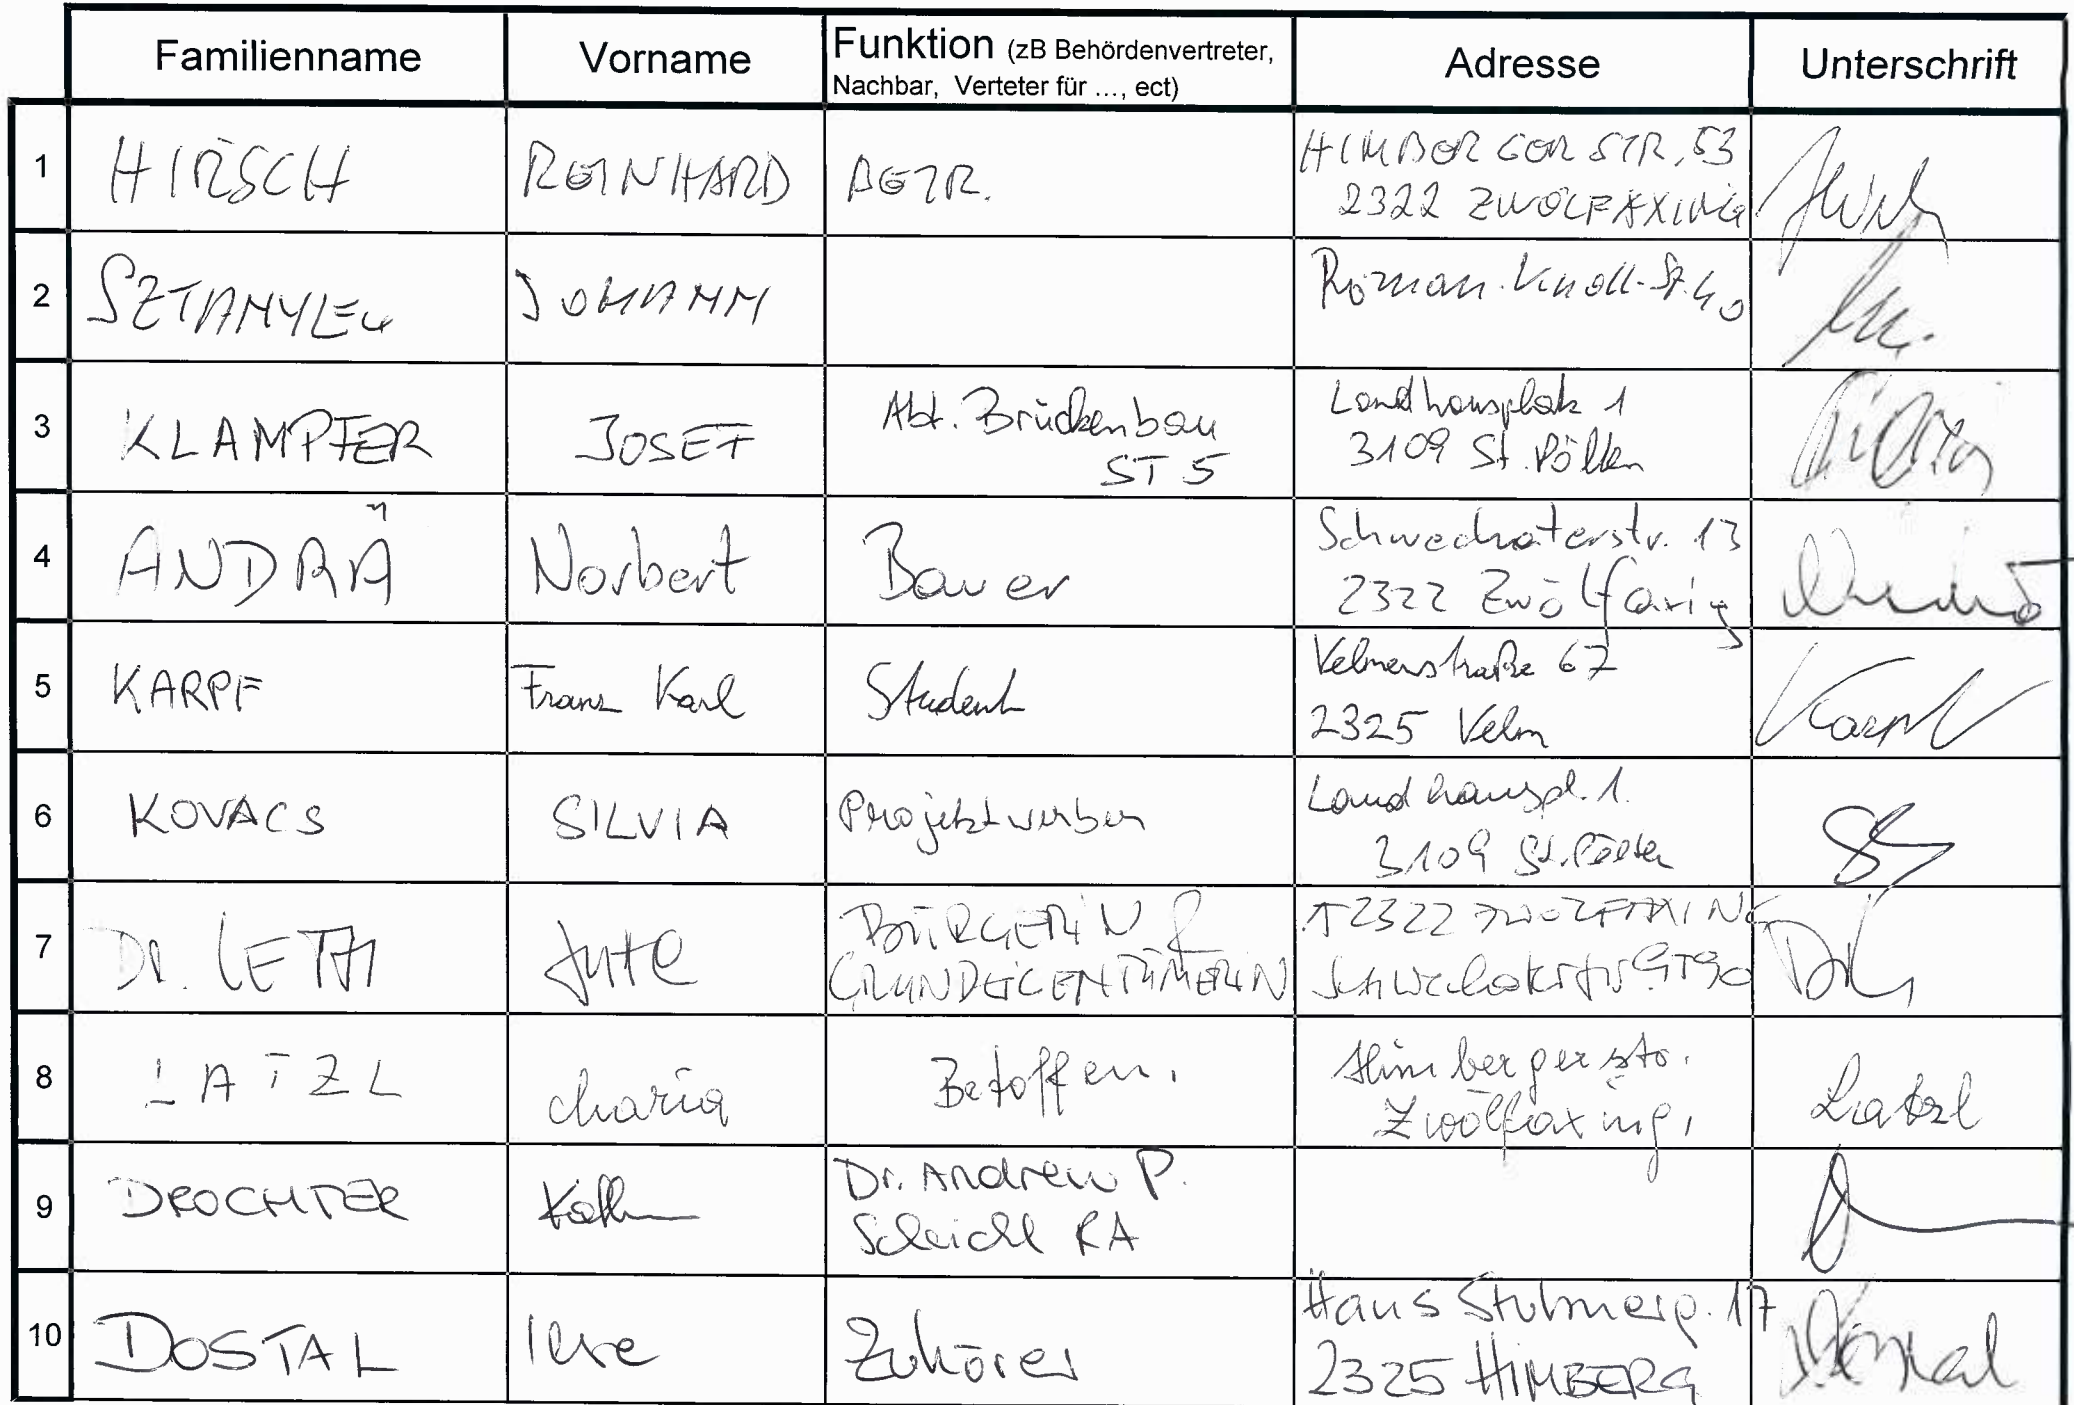 Familienname Vorname Funktion (zB Behördenvertreter, Nachbar, Verteter für ..., ect) Adresse Unterschrift
1 HIRSCH REINHARD BETR. HIMBERGER STR. 53
2322 ZWÖLFAXING
2 JOHANN
3 KLAMPFER JOSEF Abt. Brückenbau Landhausplatz 1
ST 5 3109 St. Pölten
4 ANDRÄ Norbert Bauer Schwechaterstr. 13
2322 Zwölfaxing
5 KARPF Franz Karl Student Velmerstraße 67 Karpf
2325 Velm
6 KOVACS SILVIA Projektwerber Landhauspl. 1.
3109 St. Pölten
7 Dr. LETH Jutta BÜRGERIN & 2322 ZWÖLFAXING
GRUNDEIGENTÜMERIN
8 LATZL Maria Betoffen. Himbergerstr. Latzl
Zwölfaxing,
9 DROCHTER Dr. Andrew P.
Scheichl RA
10 DOSTAL Ilse Zuhörer 17 Dostal
2325 HIMBERG